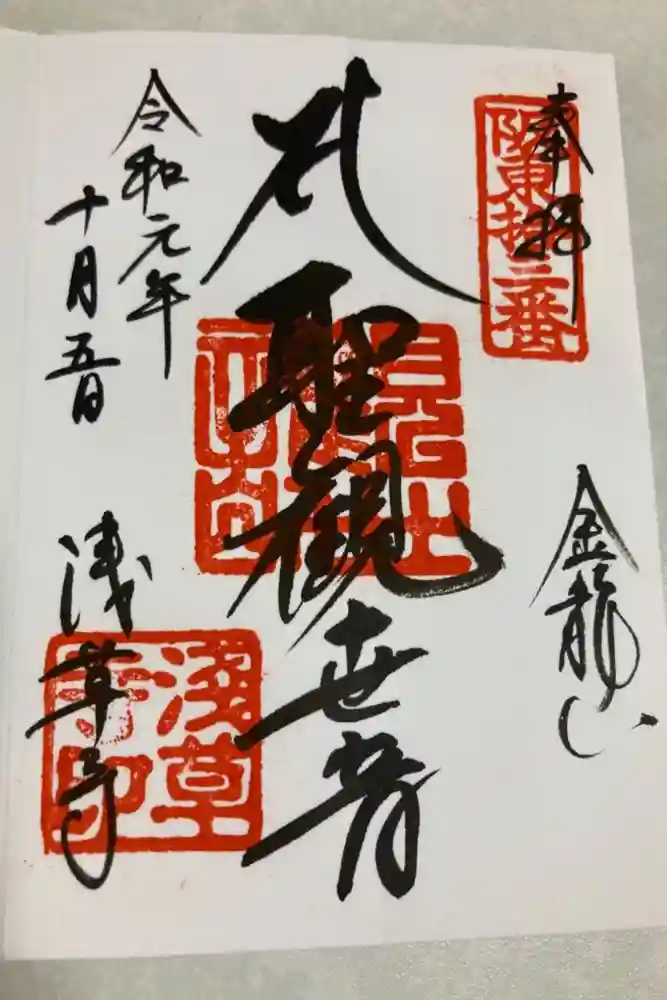 奉拝
阪東拾三番
金龍山
聖観世音
令和元年
十月五日
浅草寺
浅草寺印